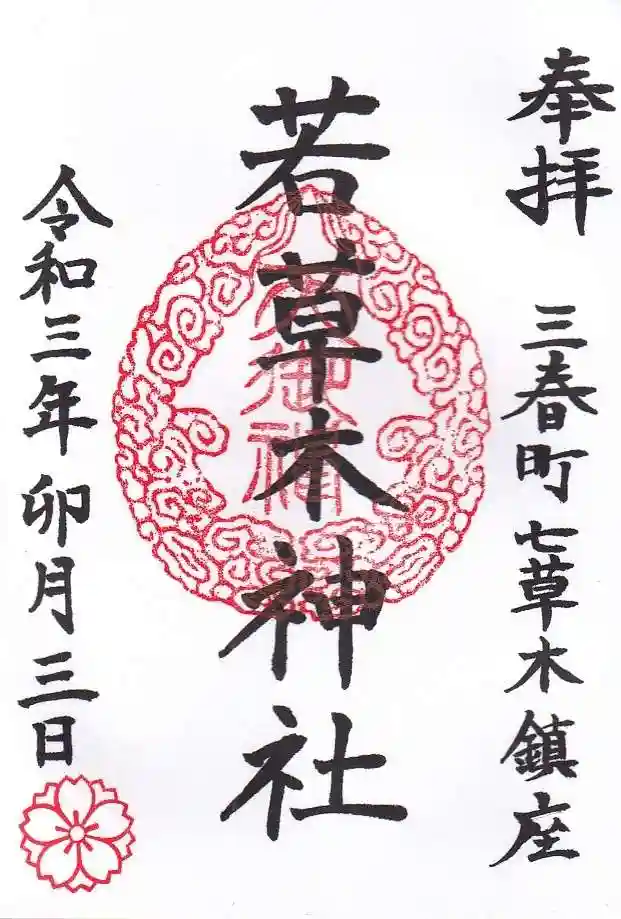 奉拝 三春町 七草木 鎮座
若草木神社
令和三年 卯月 三日